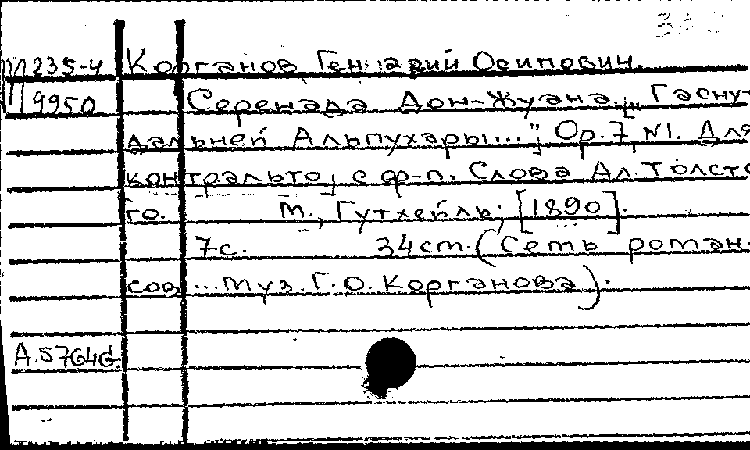 М235-4 Корганов Геннадий Осипович.
9950 Серенада Дон-Жуана „Гасну-
дальней Альпухары..."; Op.7, N1. Для
контральто, с ф-п. Слова Ал. Толсто
го. М., Гутхейль, [1890].
7с. 34ст. (Семь роман-
сов... муз. Г.О. Корганова).